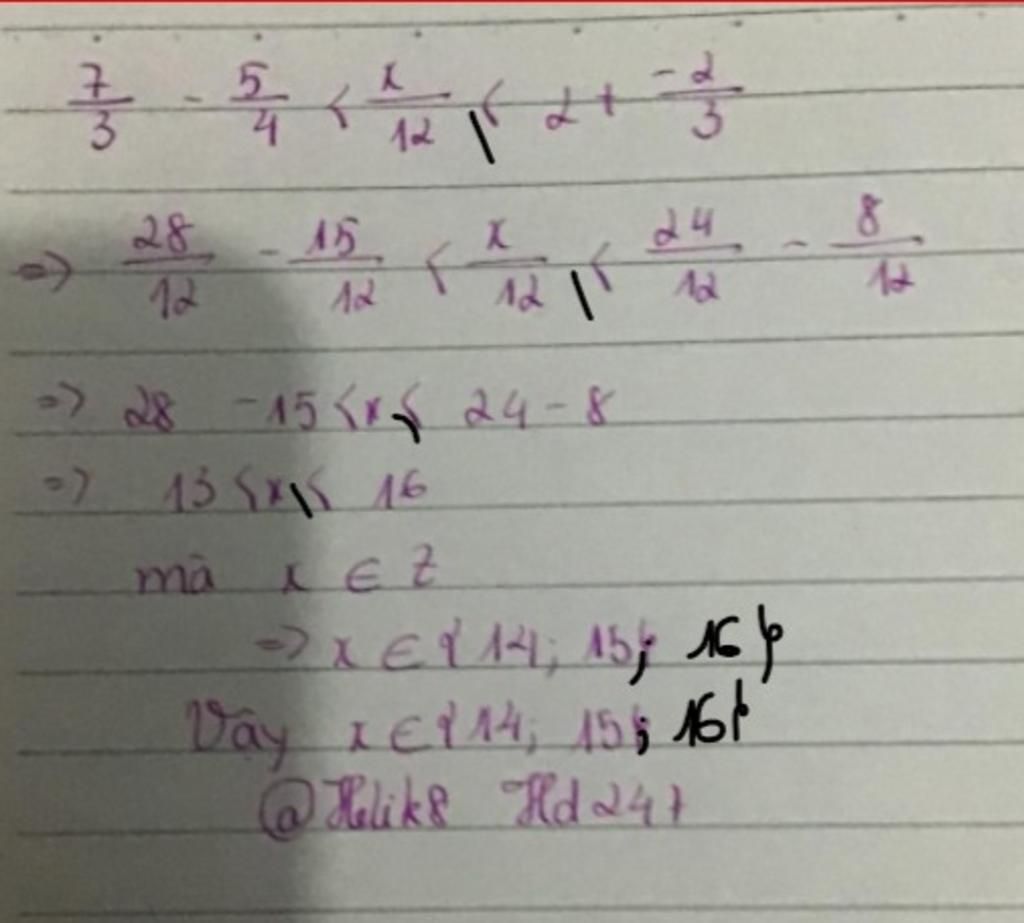 7/3 - 5/4 < x/12 ≤ 2 + -2/3
=> 28/12 - 15/12 < x/12 ≤ 24/12 - 8/12
=> 28 - 15 < x ≤ 24 - 8
=> 13 < x ≤ 16
mà x ∈ Z
=> x ∈ { 14; 15; 16 }
Vậy x ∈ { 14; 15; 16 }